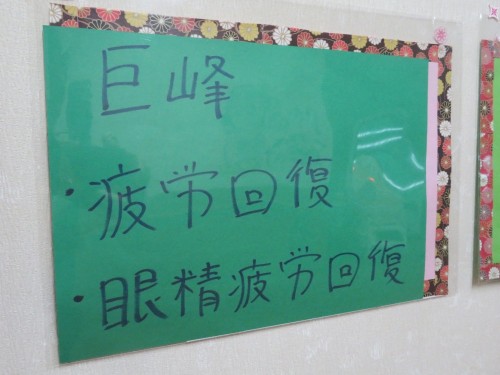 巨峰
・疲労回復
・眼精疲労回復